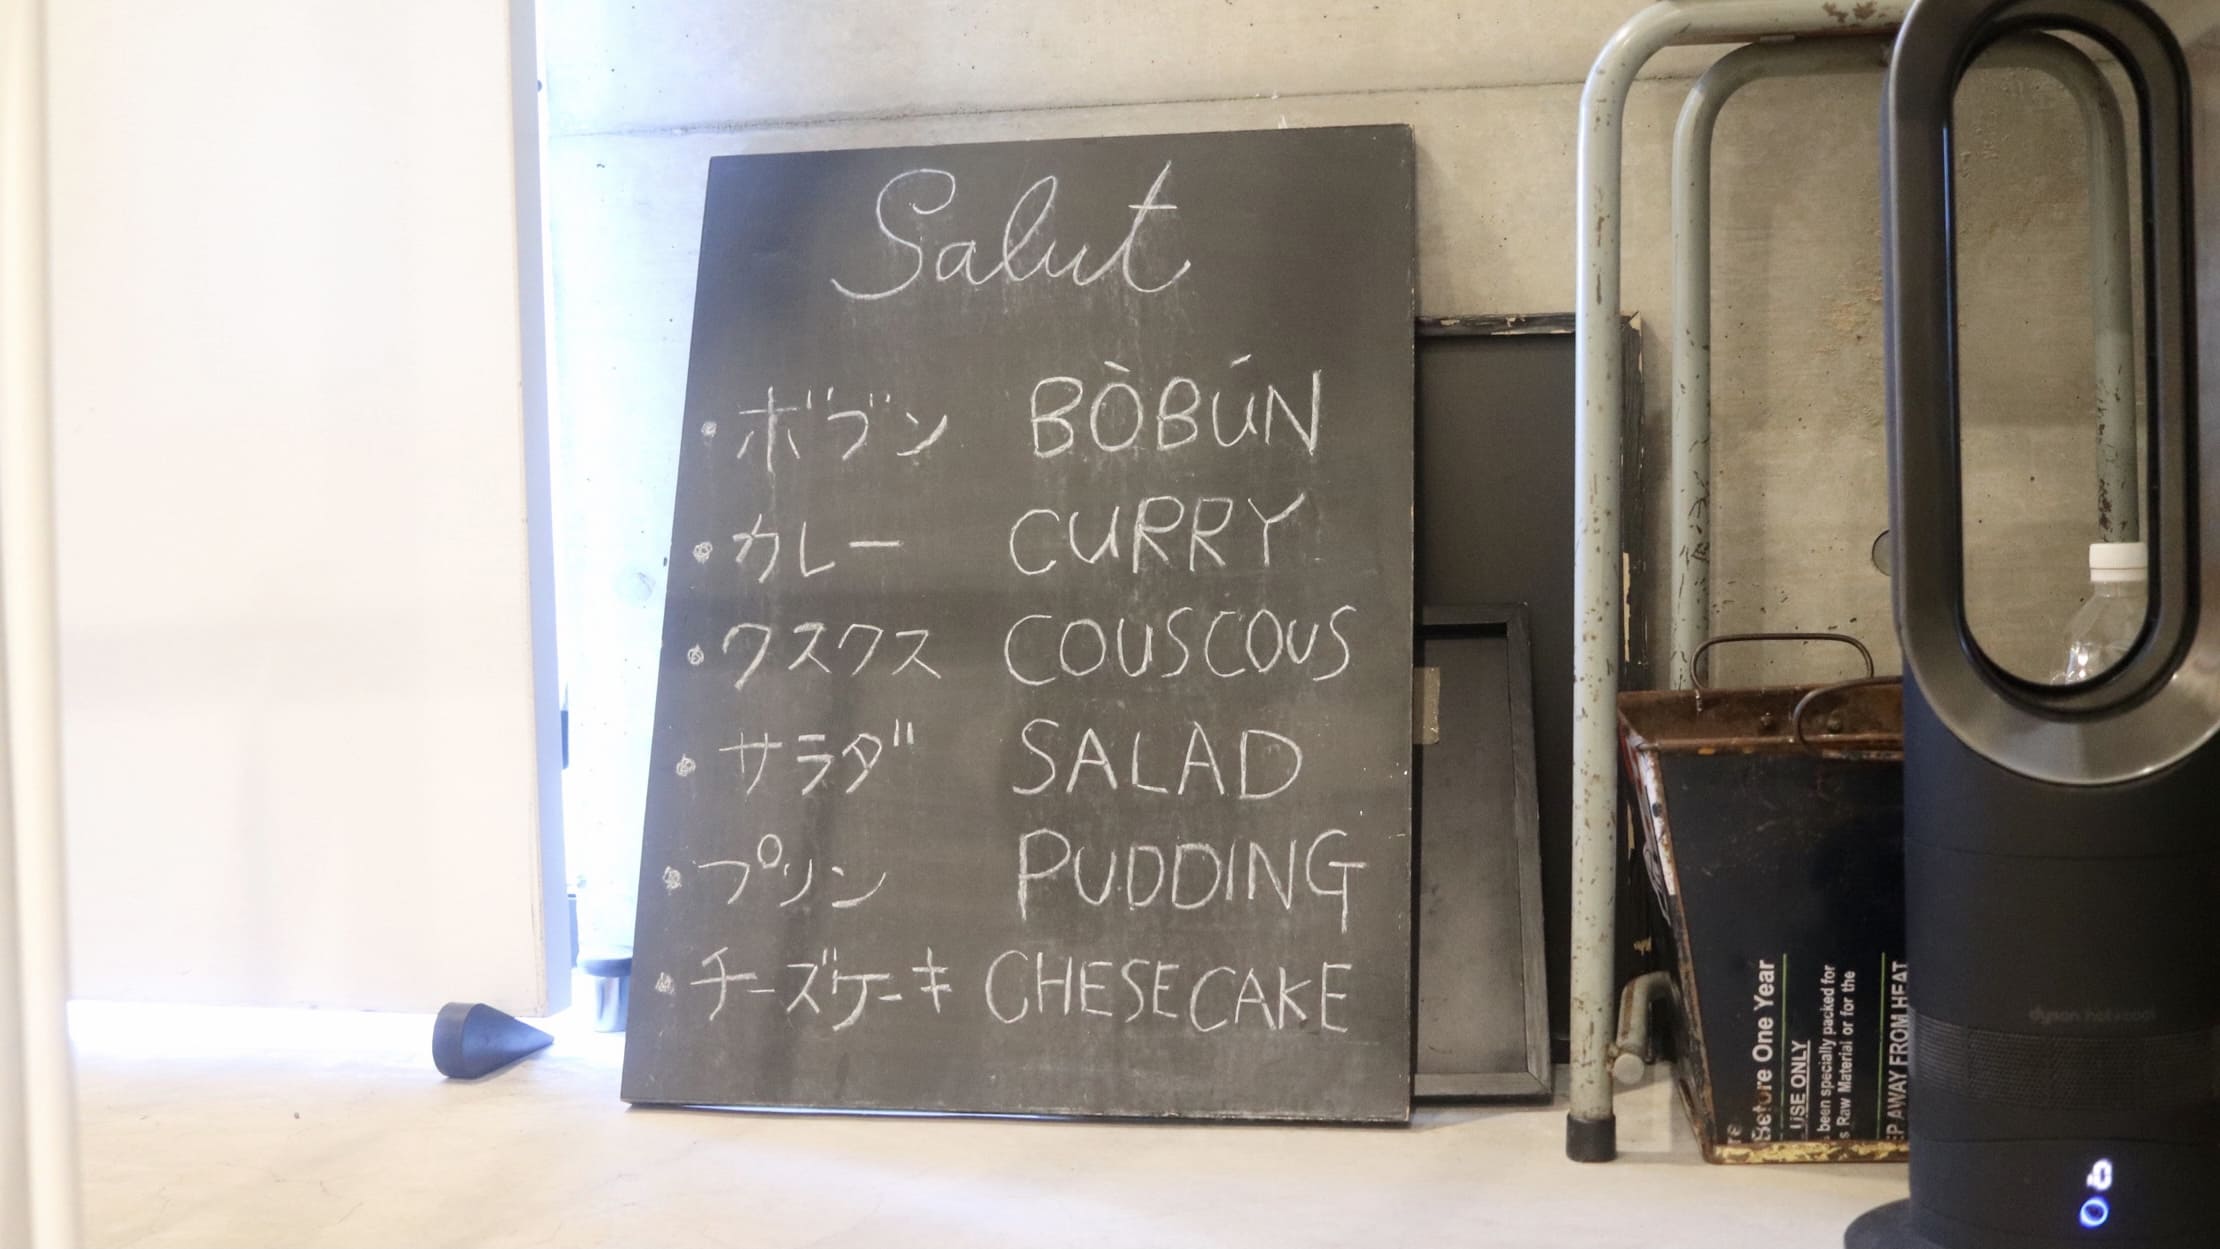 Salut
・ボブン BÒBÚN
・カレー CURRY
・クスクス COUSCOUS
・サラダ SALAD
・プリン PUDDING
・チーズケーキ CHESECAKE
Before One Year
USE ONLY
been specially packed for
Raw Material or for the
AWAY FROM HEAT
dyson hot+cool